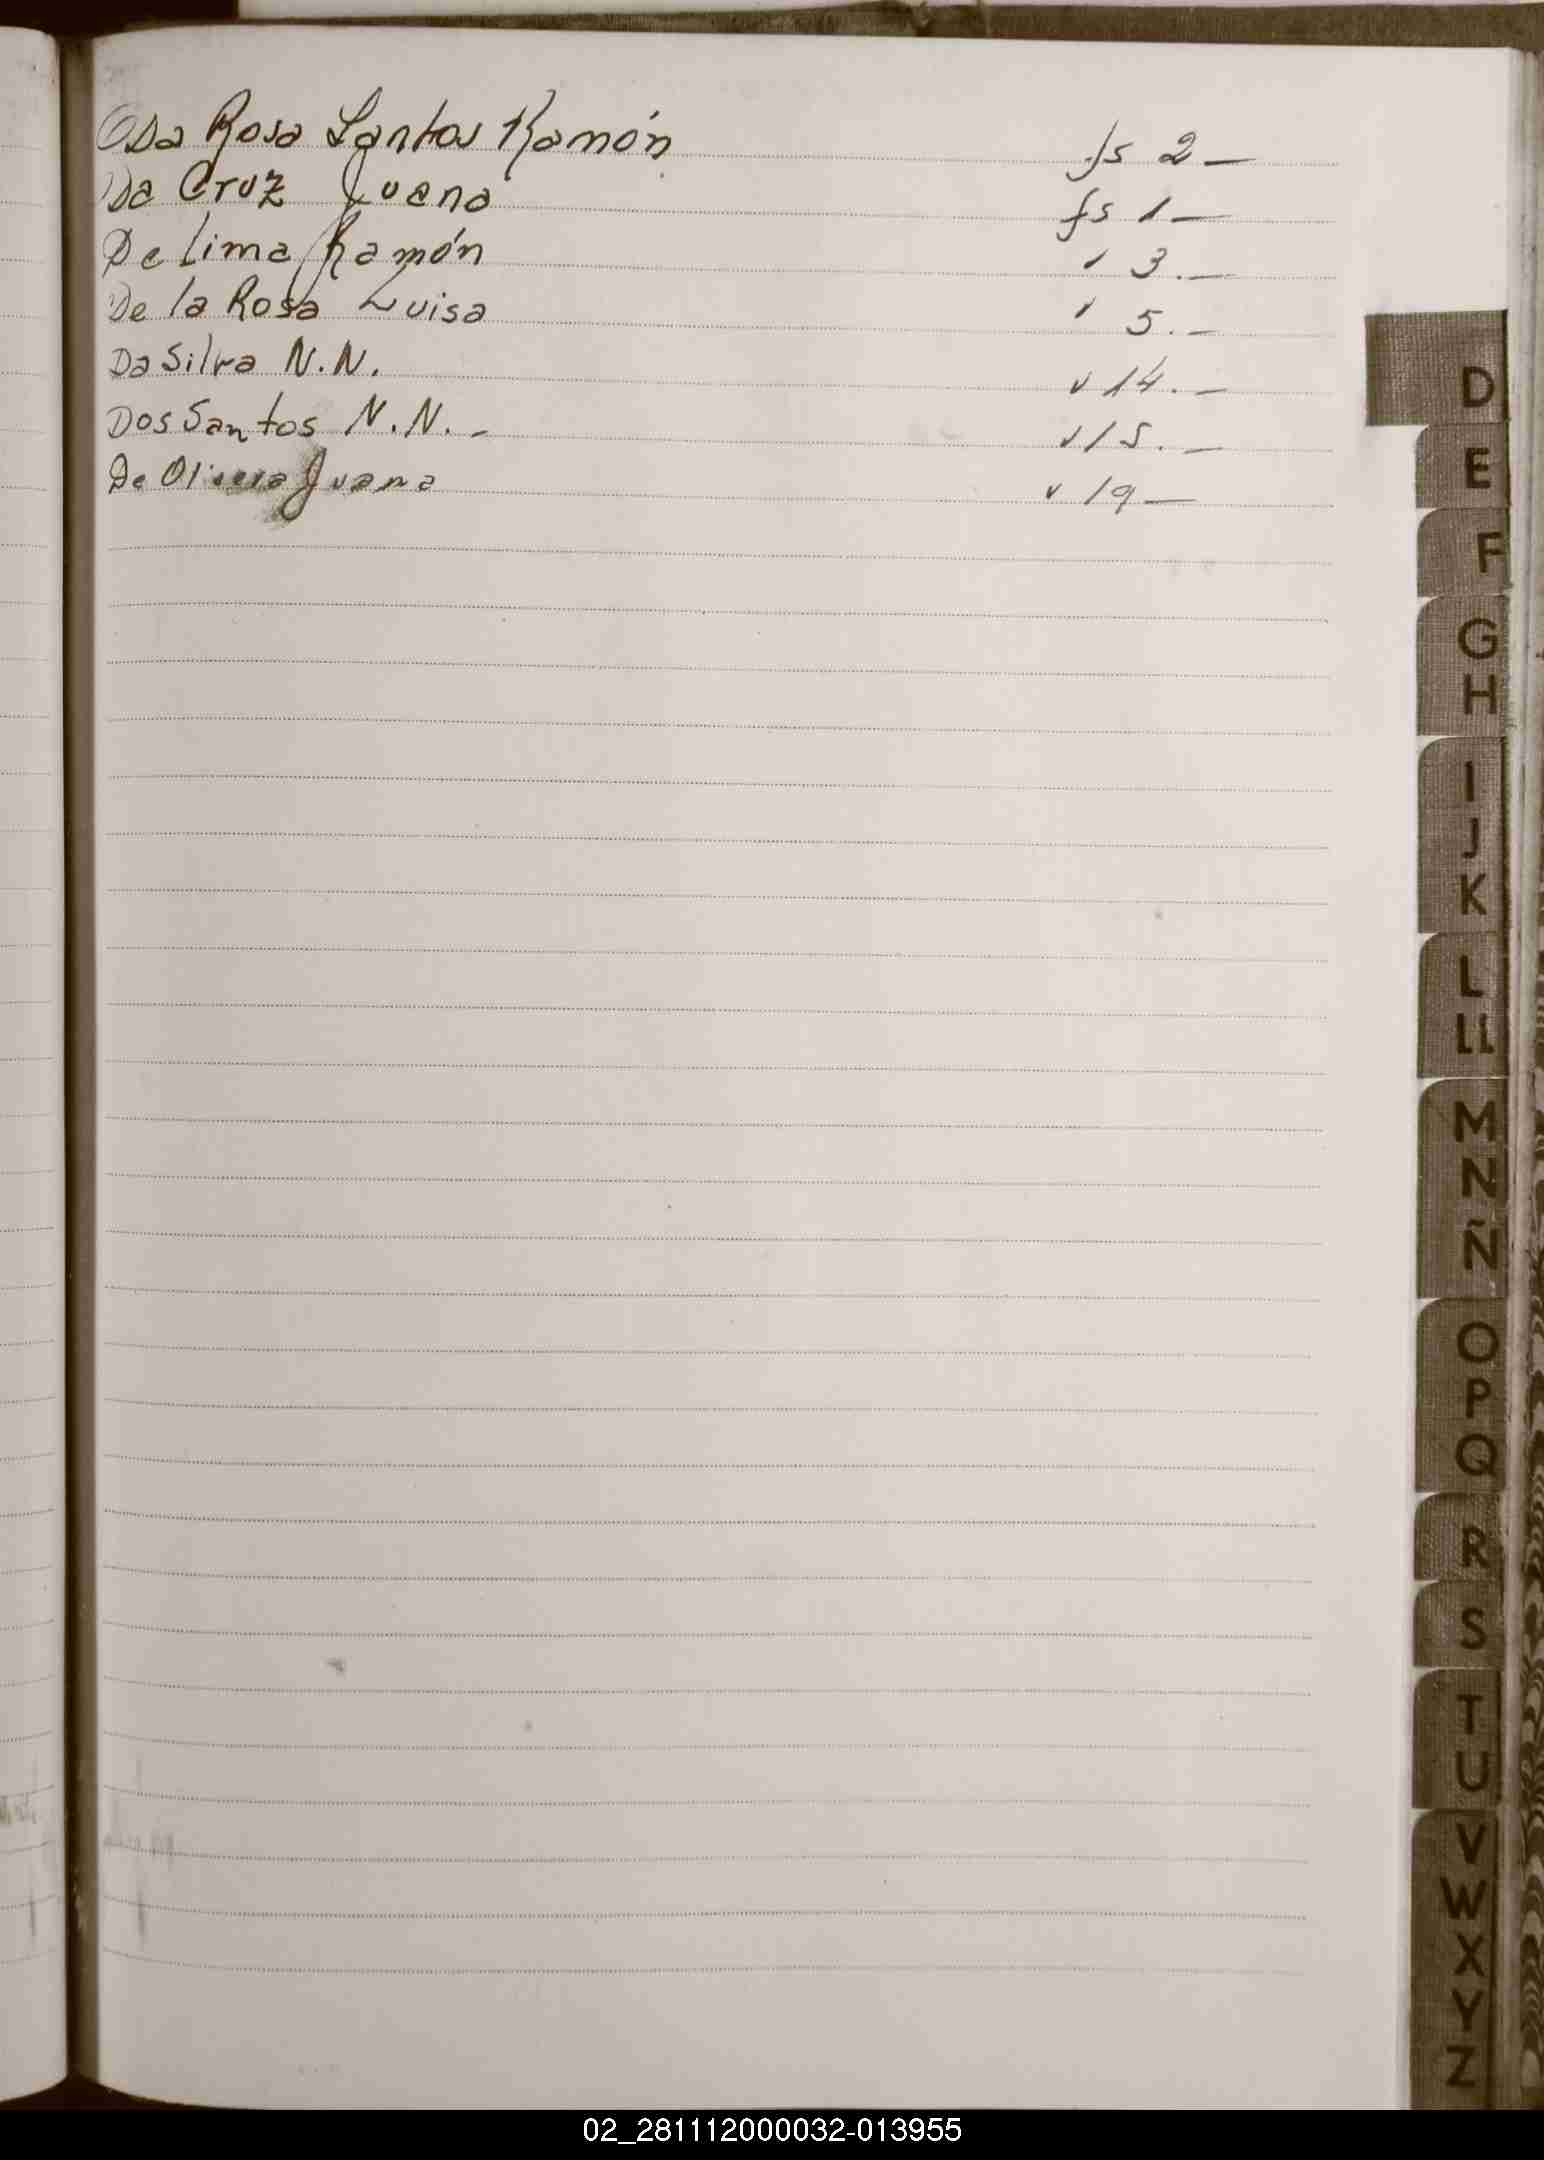 Da Rosa Santos Ramón fs 2 —
Da Cruz Juana fs 1 —
De lima Ramón " 3. —
De la Rosa Luisa " 5. —
Da Silva N.N. " 14. —
Dos Santos N.N. - " 15. —
De Olivera Juana " 19 —
D
E
F
G
H
I
J
K
L
LL
M
N
Ñ
O
P
Q
R
S
T
U
V
W
X
Y
Z
02_281112000032-013955